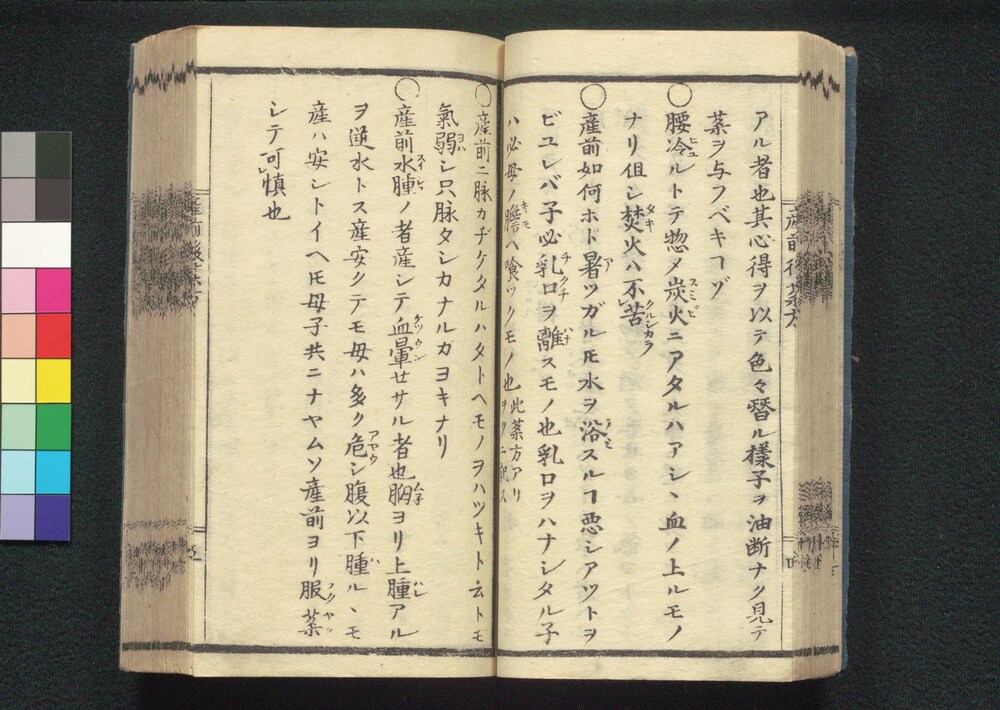 アル者也其心得ヲ以テ色々替ル様子ヲ油断ナク見テ
薬ヲ与フベキヿゾ
○腰冷ルトテ惣〆炭火ニアタルハアシヽ血ノ上ルモノ
ナリ但シ焚火ハ不苦
○産前如何ホド暑ツガル𪜈水ヲ浴スルヿ悪シアツトヲ
ビユレバ子必乳口ヲ離スモノ也乳口ヲハナシタル子
ハ必母ノ膽ヘ喰ツクモノ也此薬方アリ
○産前ニ脉カヂケタルハタトヘモノヲハツキト云トモ
氣弱シ只脉タシカナルガヨキナリ
○産前水腫ノ者産シテ血暈せサル者也胸ヨリ上腫アル
ヲ逆水トス産安クテモ母ハ多ク危シ腹以下腫ルヽモ
産ハ安シトイヘ𪜈母子共ニナヤムソ産前ヨリ服薬
シテ可慎也